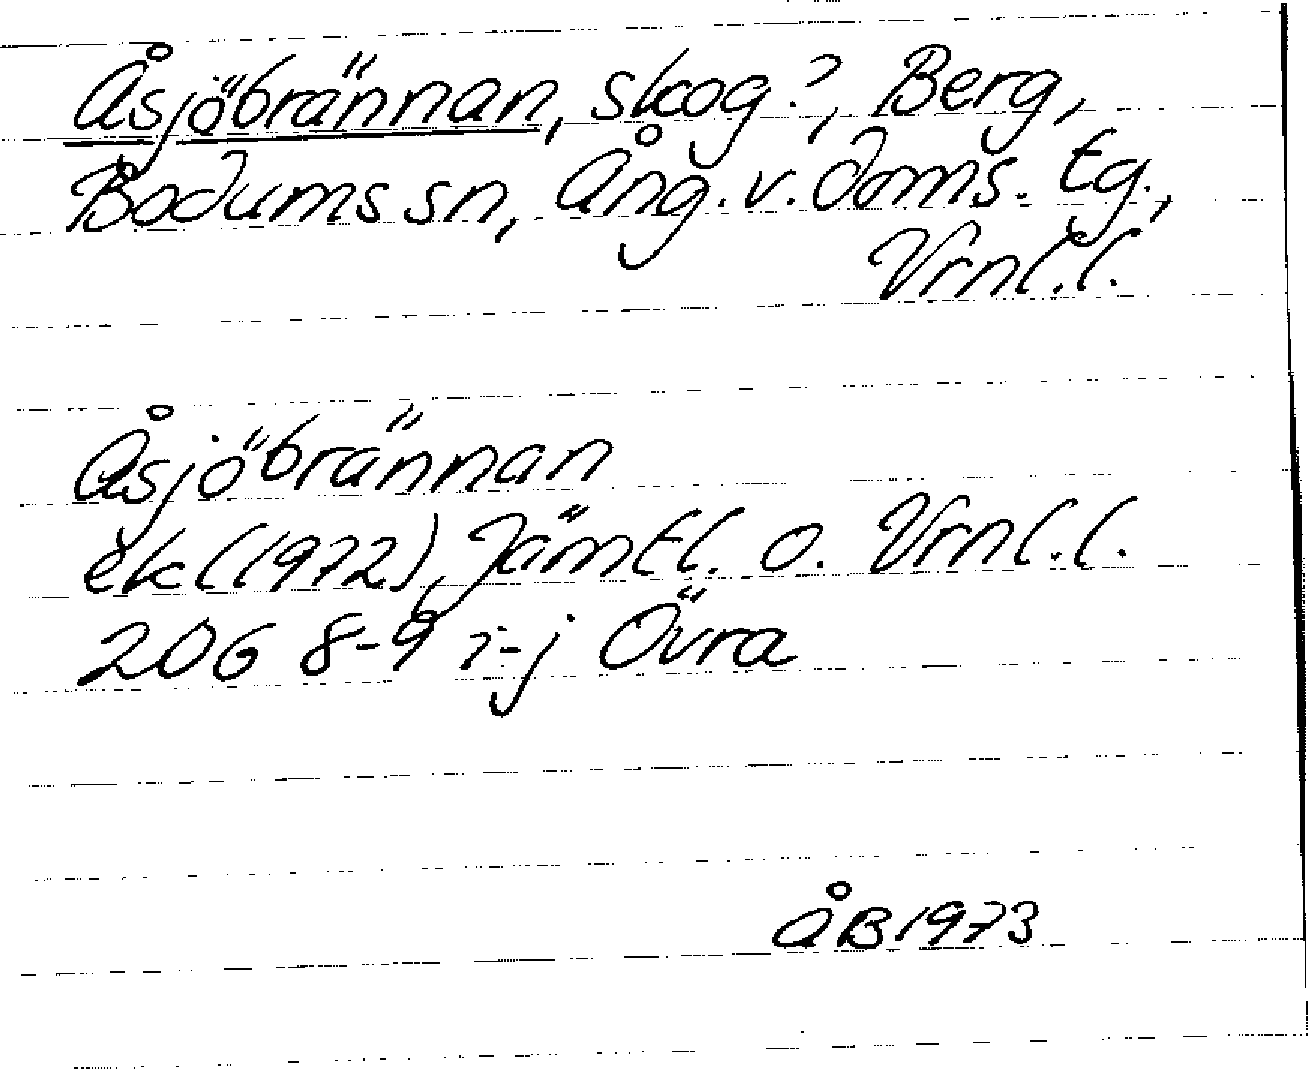 Åsjöbrännan, skog?, Berg,
Bodums sn, Ång. v. doms. tg.,
Vrnl.l.
Åsjöbrännan
ek (1972), Jämtl. o. Vrnl.l.
206 8-9 i-j Övra
ÅB 1973